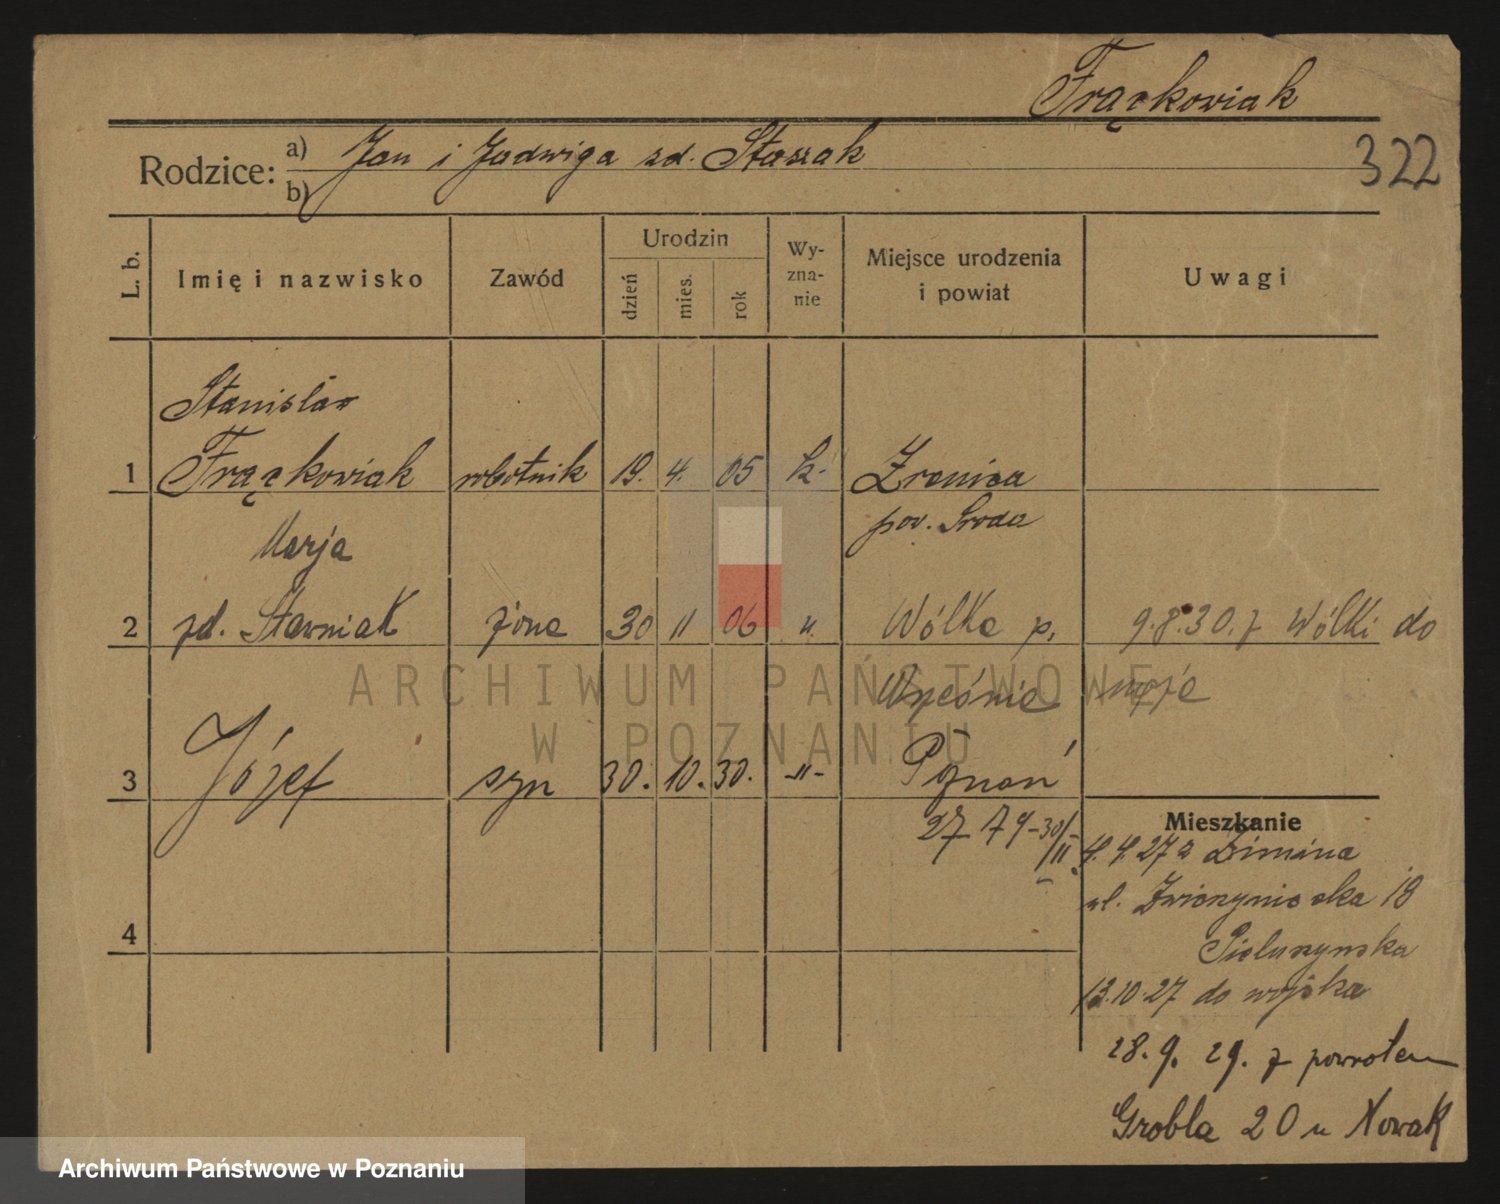 Frąckowiak
322
Rodzice: a) Jan i Jadwiga zd. Staszak
b)
L. b. Imię i nazwisko Zawód Urodzin dzień mies. rok Wy-zna-nie Miejsce urodzenia i powiat Uwagi
Stanisław
1 Frąckowiak robotnik 19. 4. 05 k. Zrenica
pow. Środa
Marja
2 zd. Stawniak żona 30 11 06 u. Wólka p. 9.8.30. z Wólki do
Września męża
3 Józef syn 30. 10. 30. -"- Poznań
2779-30/II
4
Mieszkanie
4.4.27 z Zimina
ul. Zwierzyniecka 18
13.10.27 do wojska
28. 9. 29. z powrotem
Grobla 20 u Nowak
ARCHIWUM PAŃSTWOWE
W POZNANIU
Archiwum Państwowe w Poznaniu